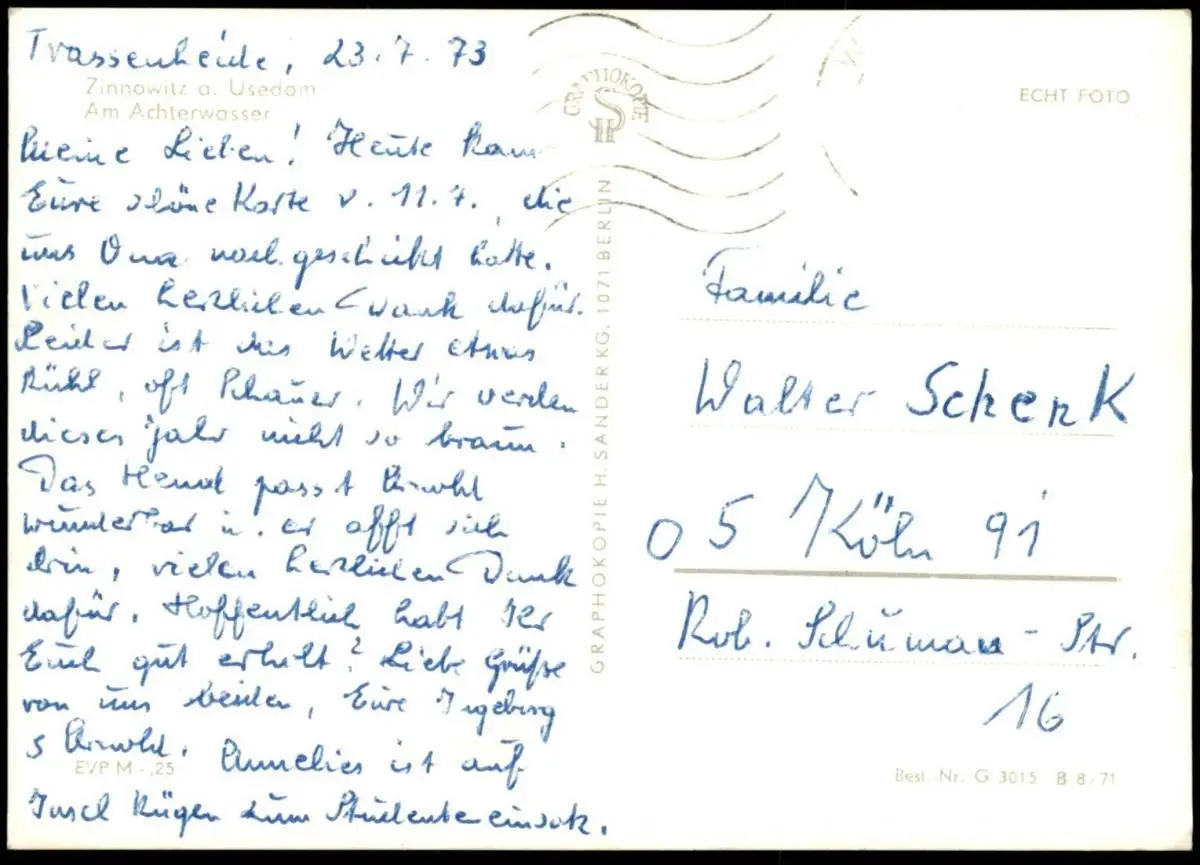 Trassenheide, 23.7.73
Zinnowitz a. Usedom
Am Achterwasser
Meine Lieben! Heute kam
Eure schöne Karte v. 11.7., die
uns Oma nachgeschickt hatte.
Vielen herzlichen Dank dafür.
Leider ist das Wetter etwas
kühl, oft Schauer. Wir werden
dieses Jahr nicht so braun.
Das Hemd passt Arnold
wunderbar u. er afft sich
drin, vielen herzlichen Dank
dafür. Hoffentlich habt Ihr
Euch gut erholt? Liebe Grüße
von uns beiden, Eure Ingeborg
& Arnold. Annelies ist auf
Insel Rügen zum Studenteneinsatz.
EVP M -,25
GRAPHOKOPIE
HS
GRAPHOKOPIE H. SANDER KG, 1071 BERLIN
ECHT FOTO
Familie
Walter Schenk
05 Köln 91
Rob. Schuman-Str.
16
Best.-Nr. G 3015 B 8/71